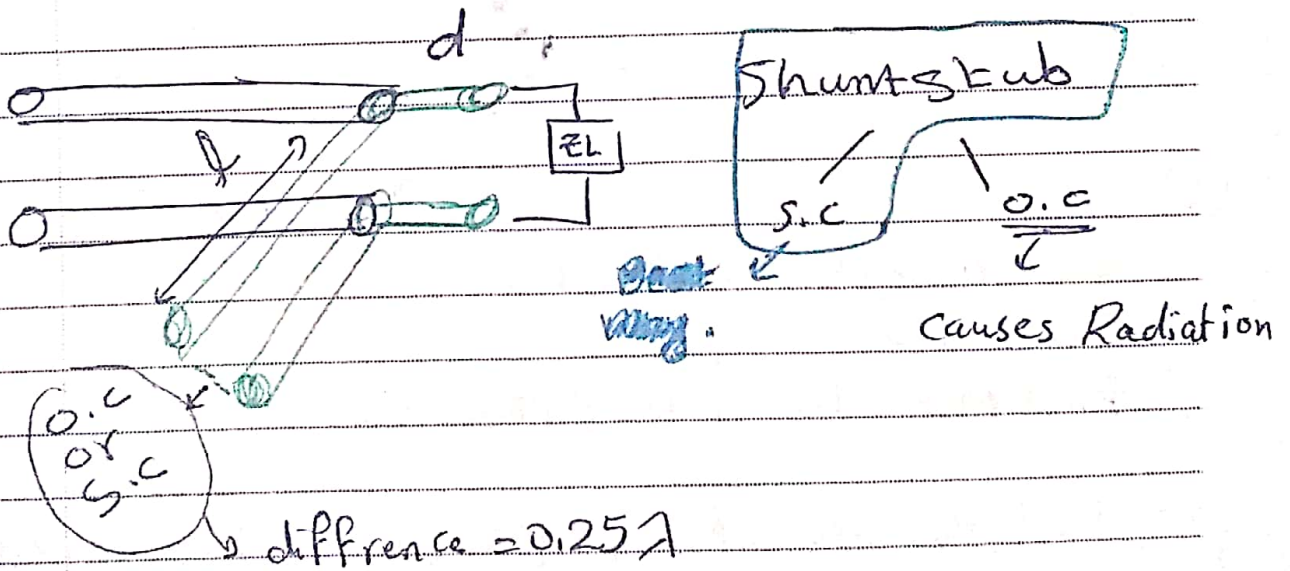 d
Shunt stub
ZL
l
S.C
O.C
Best
Way.
causes Radiation
O.C
or
S.C
diffrence = 0.25λ